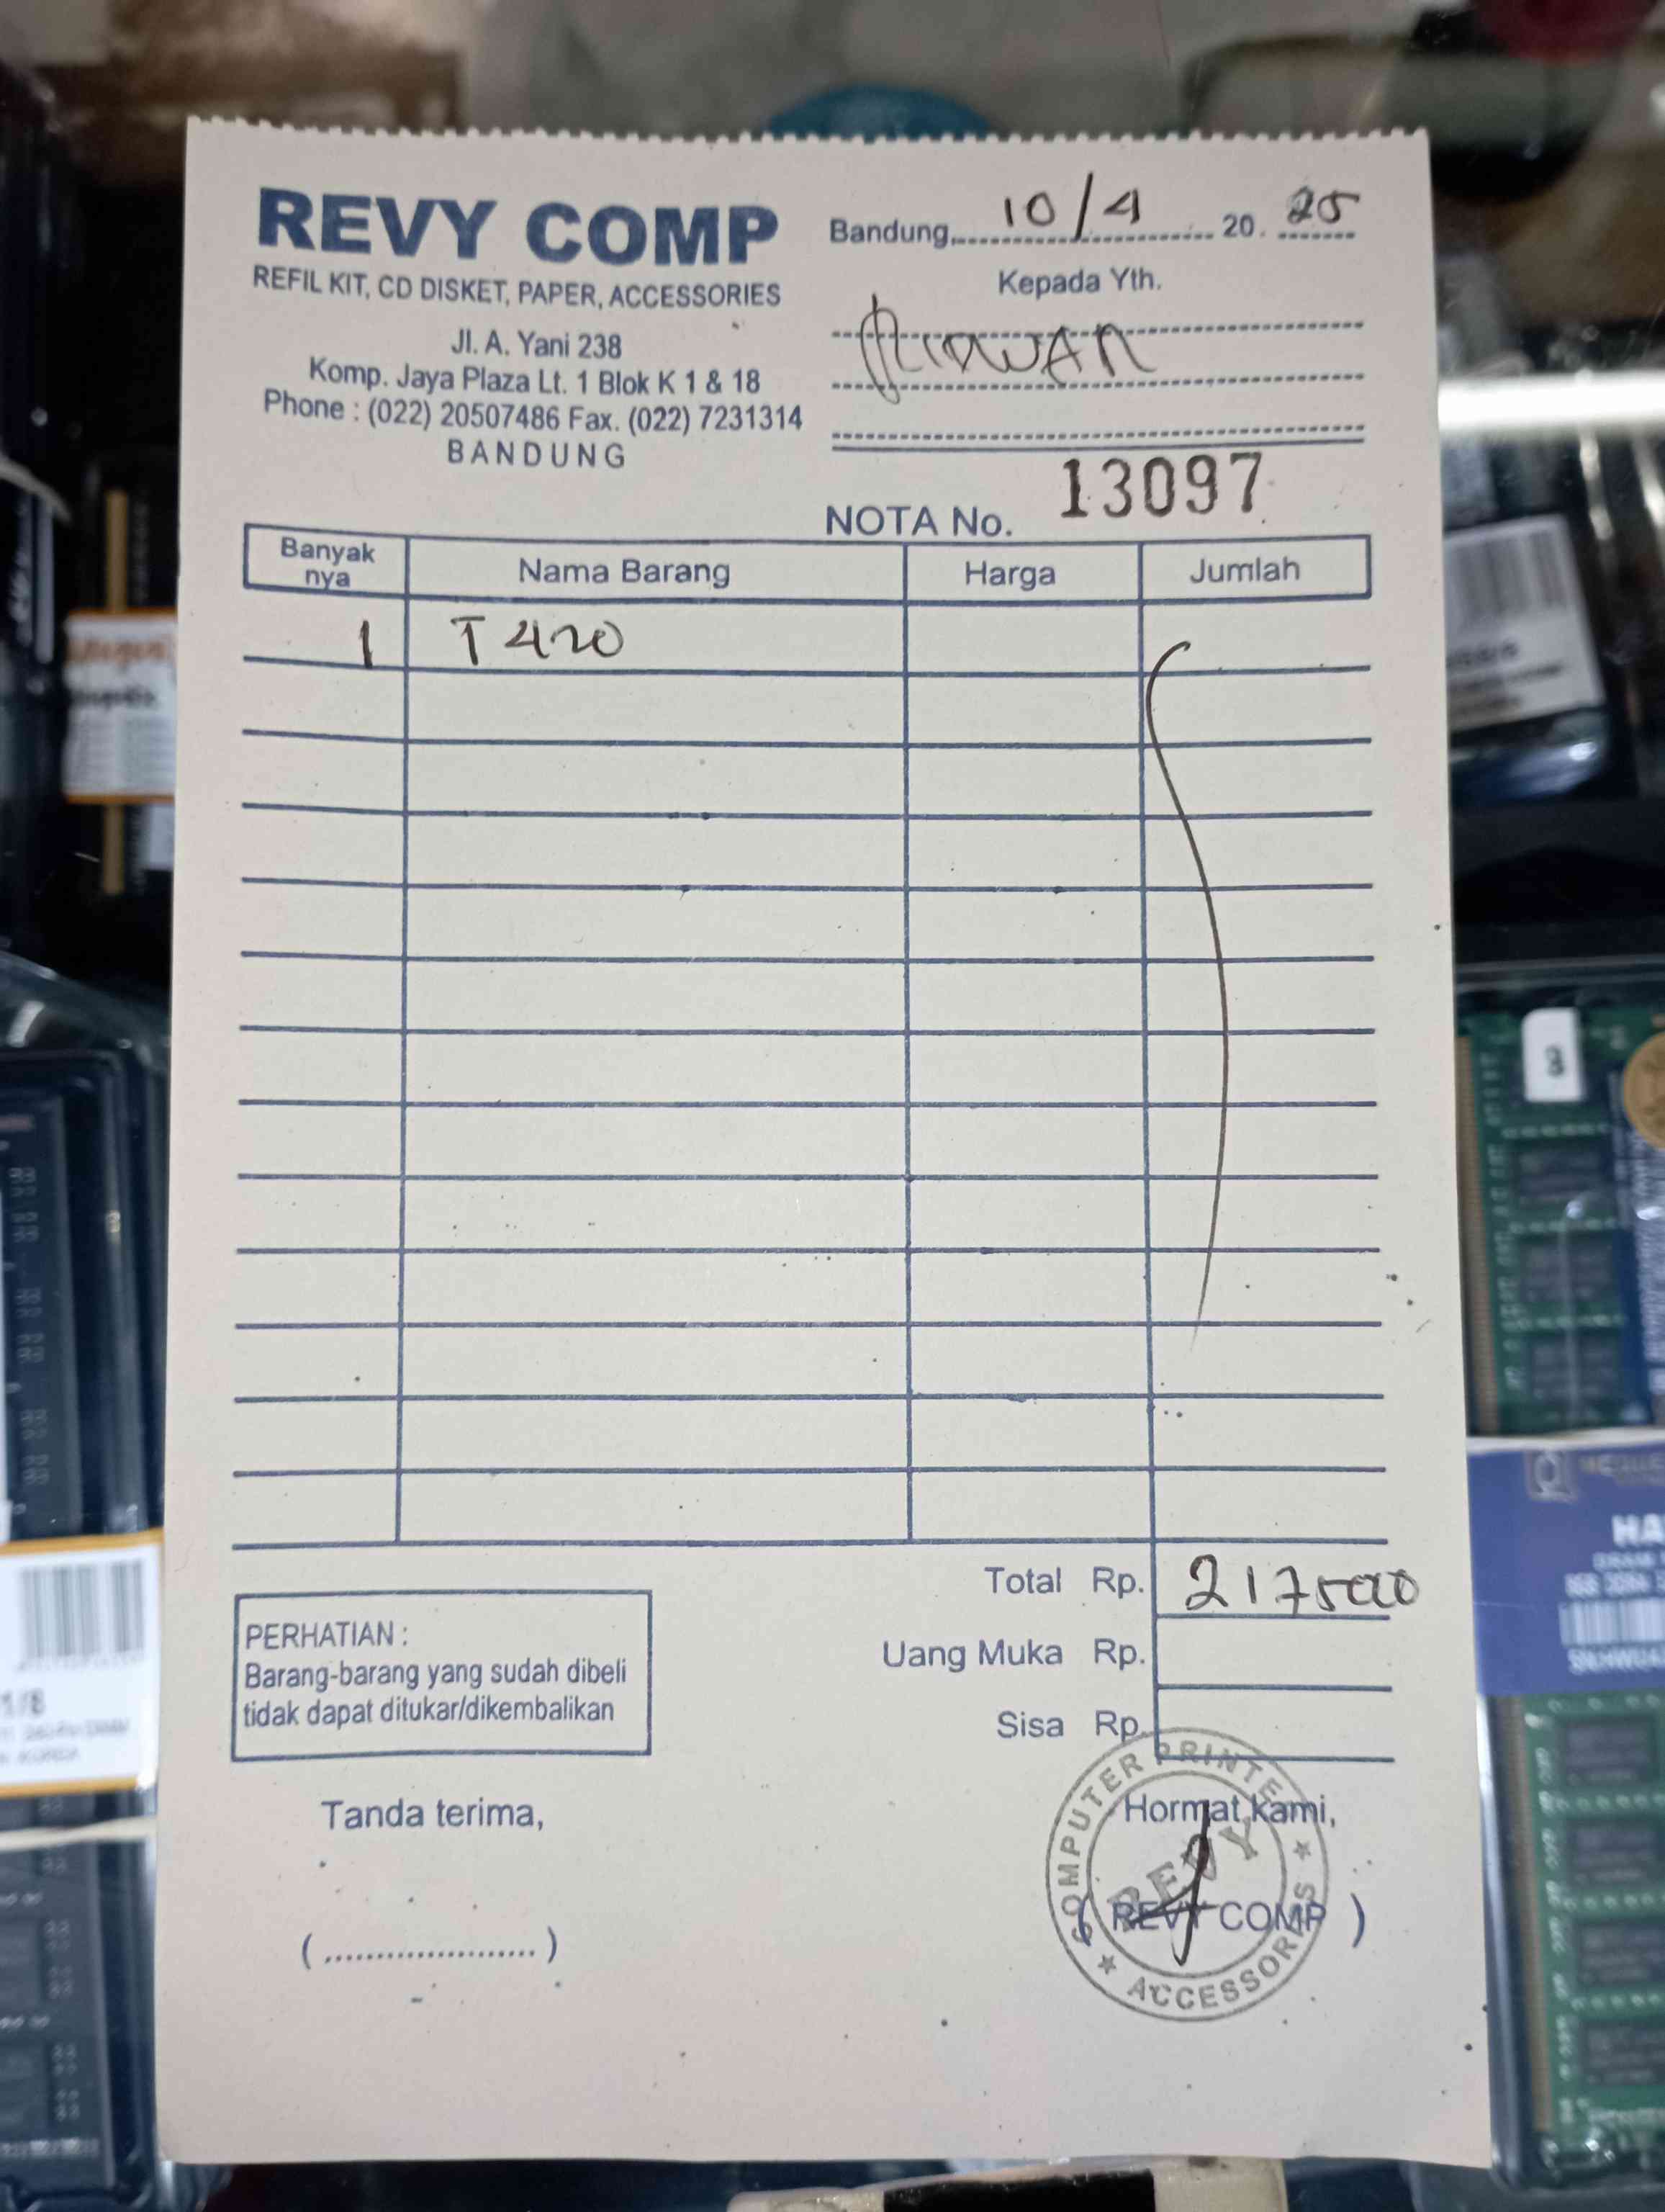 REVY COMP
REFIL KIT, CD DISKET, PAPER, ACCESSORIES
Jl. A. Yani 238
Komp. Jaya Plaza Lt. 1 Blok K 1 & 18
Phone : (022) 20507486 Fax. (022) 7231314
BANDUNG
Bandung, 10/4 20. 25
Kepada Yth.
RIDWAN
NOTA No. 13097
Banyak nya Nama Barang Harga Jumlah
1 T 420
Total Rp. 2175000
Uang Muka Rp.
Sisa Rp.
PERHATIAN :
Barang-barang yang sudah dibeli
tidak dapat ditukar/dikembalikan
Tanda terima,
(......................)
Hormat kami,
( REVY COMP )
COMPUTER PRINTER
REVY
ACCESSORIES
HA
1/8
8